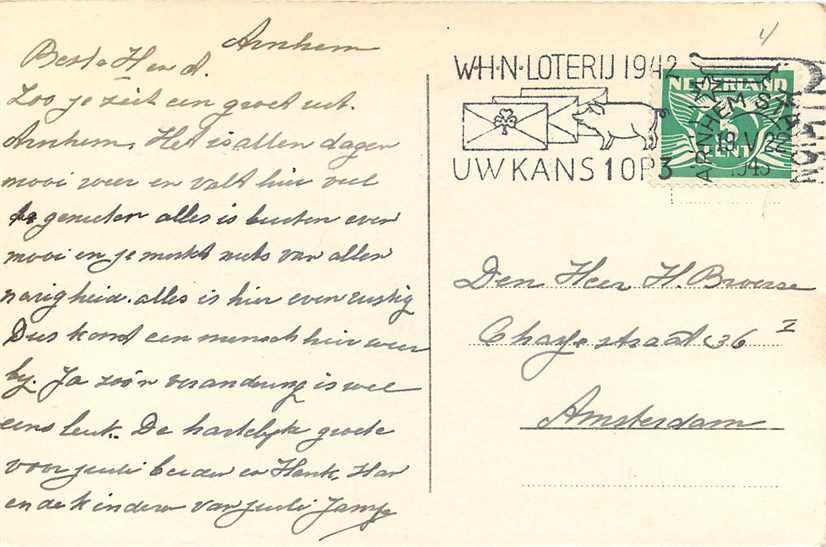 Arnhem
Beste Hend.
Zoo je ziet een groet uit.
Arnhem. Het is allen dagen
mooi weer en valt hier veel
te genieten alles is buiten even
mooi en je merkt niets van allen
narigheid. alles is hier even rustig
Dus komt een mensch hier weer
bij. Ja zoo'n verandring is wel
eens leuk.. De hartelijke groete
voor jullie beiden en Henk, Har
en de kinders van jullie
4
W·H·N·LOTERIJ 1942
UW KANS 1 OP 3
NEDERLAND
CENT
ARNHEM STATION
18 V
1943
Den Heer H. Broerse
straat 36 I
Amsterdam